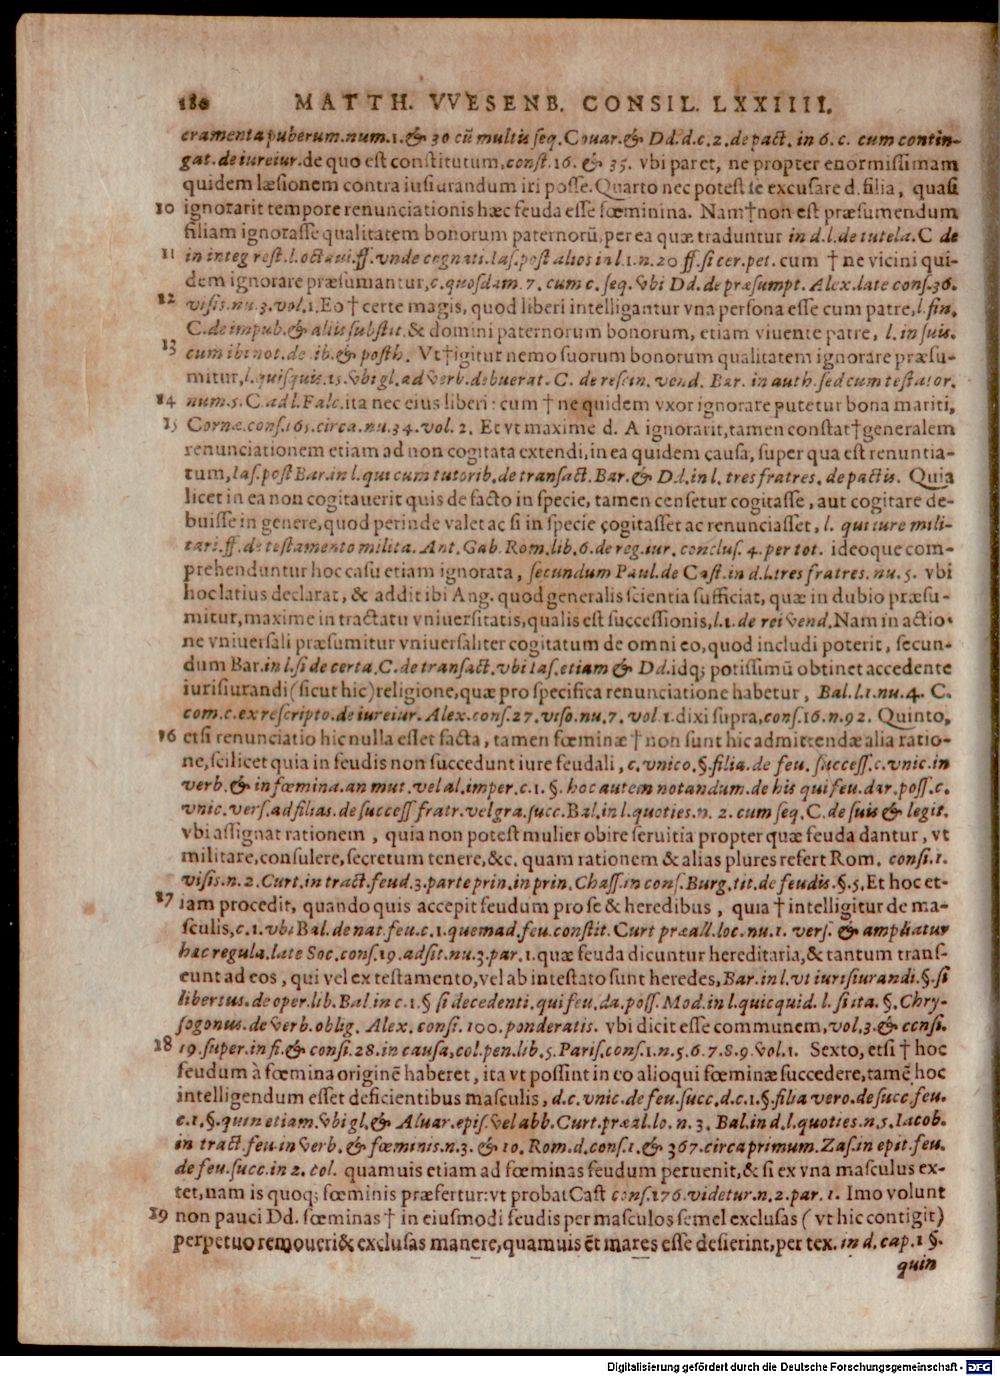 180 MATTH. VVESENB. CONSIL. LXXIIII.
cramenta puberum.num.1.& 30 cū multis seq. Couar.& Dd.d.c.2.de pact. in 6. c. cum contin-
gat.de iureiur.de quo est constitutum,const.16. & 35. vbi paret, ne propter enormissimam
quidem læsionem contra iusiurandum iri posse. Quarto nec potest se excusare d. filia, quasi
10 ignorarit tempore renunciationis hæc feuda esse fœminina. Nam†non est præsumendum
filiam ignorasse qualitatem bonorum paternorū,per ea quæ traduntur in d.l.de tutela.C de
11 in integ rest.l.octaui.ff.vnde cognati.Ias.post alios in l.1.n.20 ff.si cer.pet. cum † ne vicini qui-
dem ignorare præsumantur,c.quosdam.7. cum c. seq. vbi Dd.de præsumpt. Alex.late cons.36.
12 visis.nu.3.vol.1.Eo† certe magis, quod liberi intelligantur vna persona esse cum patre,l.fin.
C.de impub.& aliis subst it.& domini paternorum bonorum, etiam viuente patre, l. in suis.
13 cum ibi not.de lib.& posth. Vt†igitur nemo suorum bonorum qualitatem ignorare præsu-
mitur,l.quisquis.15.vbi gl.ad verb.debuerat. C. de rescin. vend. Bar. in auth.sed cum testator.
14 num.5.C.ad l.Falc.ita nec eius liberi: cum † ne quidem vxor ignorare putetur bona mariti,
15 Cornæ.cons.165.circa.nu.34.vol. 2. Et vt maxime d. A ignorarit,tamen constat†generalem
renunciationem etiam ad non cogitata extendi,in ea quidem causa, super qua est renuntia-
tum,Ias.post Bar.in l.qui cum tutorib.de transact. Bar.& Dd.in l. tres fratres. de pactis. Quia
licet in ea non cogitauerit quis de facto in specie, tamen censetur cogitasse , aut cogitare de-
buisse in genere,quod perinde valet ac si in specie cogitasset ac renunciasset, l. qui iure mili-
tari.ff.de testamento milita. Ant. Gab. Rom.lib.6.de reg.iur. conclus.4.per tot. ideoque com-
prehenduntur hoc casu etiam ignorata, secundum Paul.de Cast.in d.l.tres fratres.nu.5. vbi
hoc latius declarat, & addit ibi Ang. quod generalis scientia sufficiat, quæ in dubio præsu-
mitur,maxime in tractatu vniuersitatis,qualis est successionis,l.1.de rei vend.Nam in actio-
ne vniuersali præsumitur vniuersaliter cogitatum de omni eo,quod includi poterit, secun-
dum Bar.in l.si de certa.C.de transact.vbi Ias.etiam & Dd.idq; potissimū obtinet accedente
iurisiurandi(sicut hic)religione,quæ pro specifica renunciatione habetur, Bal.l.1.nu.4. C.
com.c.ex rescripto.de iureiur. Alex.cons.27.viso.nu.7. vol 1.dixi supra,cons.16.n.92. Quinto,
16 etsi renunciatio hic nulla esset facta, tamen fœminæ†non sunt hic admittendæ alia ratio-
ne,scilicet quia in feudis non succedunt iure feudali, c.vnico.§.filia.de feu. success.c.vnic.in
verb.& in fœmina.an mut.vel al.imper.c.1.§. hoc autem notandum.de his qui feu.dar.poss.c.
vnic.vers.ad filias.de success fratr.vel gra.succ.Bal.in l.quoties.n. 2. cum seq.C.de suis & legit.
vbi assignat rationem , quia non potest mulier obire seruitia propter quæ feuda dantur, vt
militare,consulere,secretum tenere,&c. quam rationem & alias plures refert Rom. consi.1.
visis.n.2.Curt.in tract.feud.3.parte prin.in prin.Chass.in cons.Burg.tit.de feudis.§.5.Et hoc et-
17 iam procedit, quando quis accepit feudum pro se & heredibus , quia†intelligitur de ma-
sculis,c.1.vbi Bal.de nat.feu.c.1.quemad.feu.constit.Curt præall.loc.nu.1. vers. & ampliatur
hæc regula.late Soc.cons.19.adsit.nu.3.par.1.quæ feuda dicuntur hereditaria,& tantum trans-
eunt ad eos, qui vel ex testamento,vel ab intestato sunt heredes,Bar.in l.vt iurisiurandi.§.si
libertus.de oper.lib.Bal in c.1.§ si decedenti.qui feu.da.poss. Mod.in l.quicquid. l. si ita. §. Chry-
sogonus.de verb.oblig. Alex. consi. 100. ponderatis. vbi dicit esse communem,vol.3.& consi.
18 19.super.in fi.& consi.28.in causa,col.pen.lib.5.Paris.cons.1.n.5.6.7.8.9.vol.1. Sexto, etsi † hoc
feudum à fœmina originē haberet, ita vt possint in eo alioqui fœminæ succedere,tamē hoc
intelligendum esset deficientibus masculis, d.c.vnic.de feu.succ.d.c.1.§.filia vero.de succ.feu.
c.1.§.quin etiam.vbi gl.& Aluar.epis.vel abb.Curt.præal.lo.n.3. Bal.in d.l.quoties.n.5.Iacob.
in tract.feu.in verb. & fœminis.n.3. & 10. Rom.d.cons.1.& 367.circa primum.Zas.in epit.feu.
de feu.succ.in 2. col. quamuis etiam ad fœminas feudum peruenit,& si ex vna masculus ex-
tet,nam is quoq; fœminis præfertur:vt probat Cast cons.176.videtur.n.2.par. 1. Imo volunt
19 non pauci Dd. fœminas† in eiusmodi feudis per masculos semel exclusas ( vt hic contigit)
perpetuo remoueri& exclusas manere,quamuis ēt mares esse desierint,per tex.in d.cap.1 §.
quin
Digitalisierung gefördert durch die Deutsche Forschungsgemeinschaft - DFG